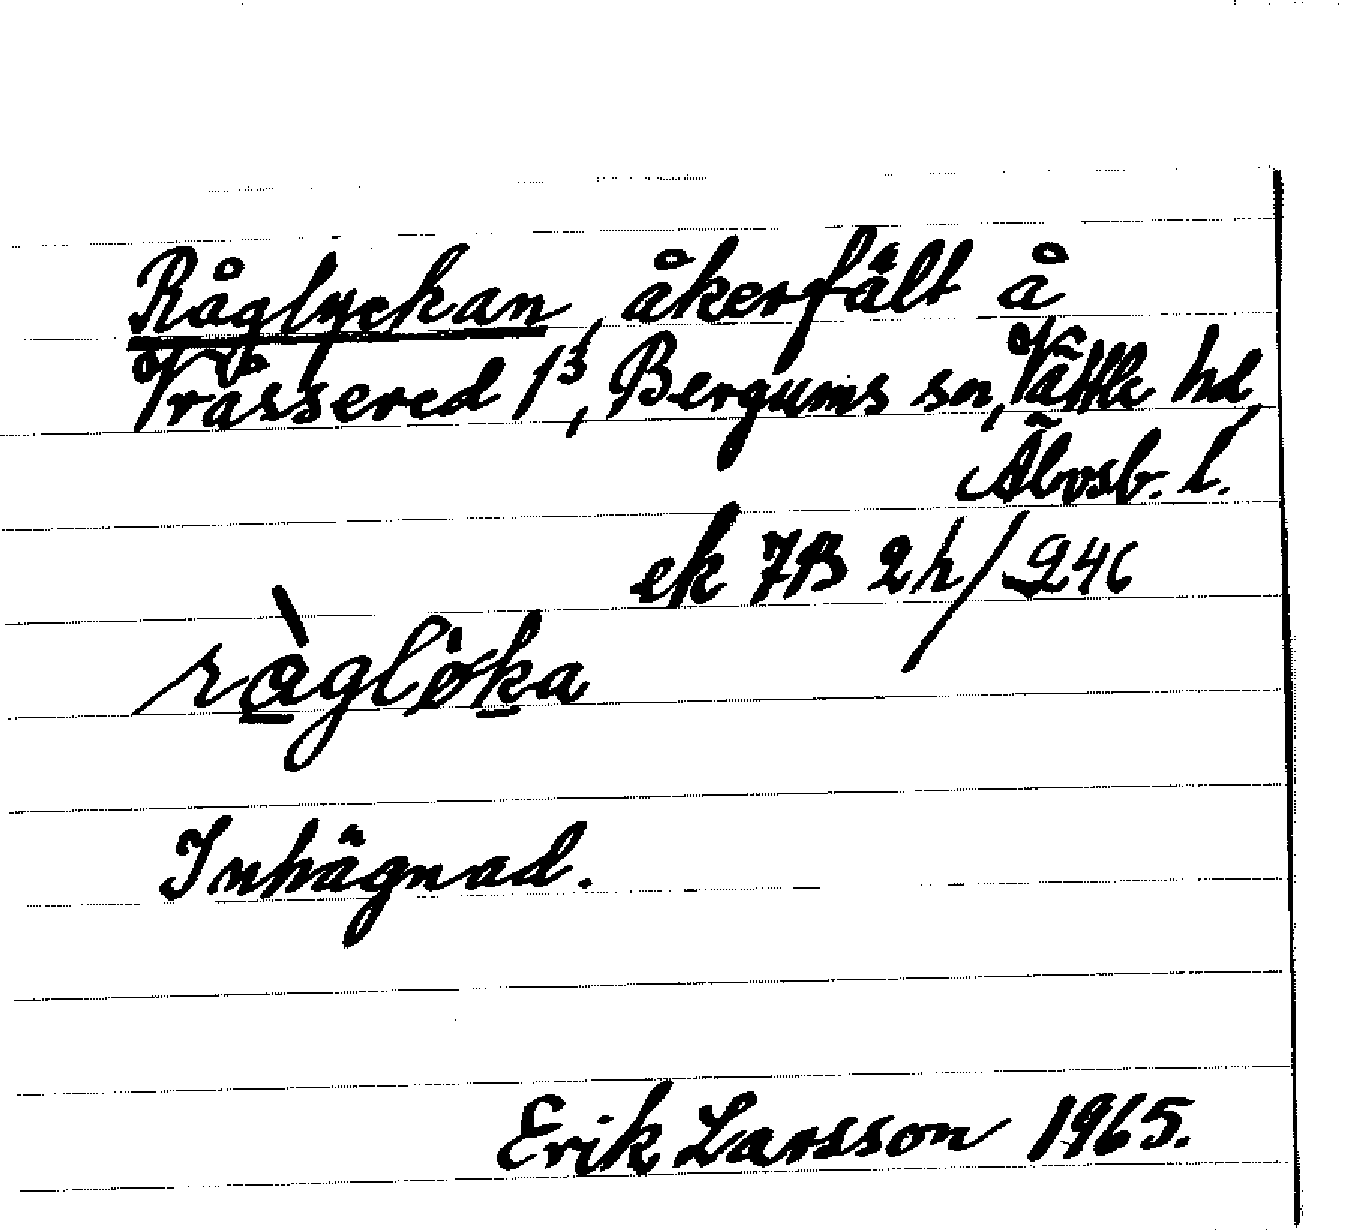 Råglyckan, åkerfält å
Vråssered 1³, Bergums sn, Vättle hd,
Älvsb. l.
ek 7B 2h/246
ràglöka
Inhägnad.
Erik Larsson 1965.